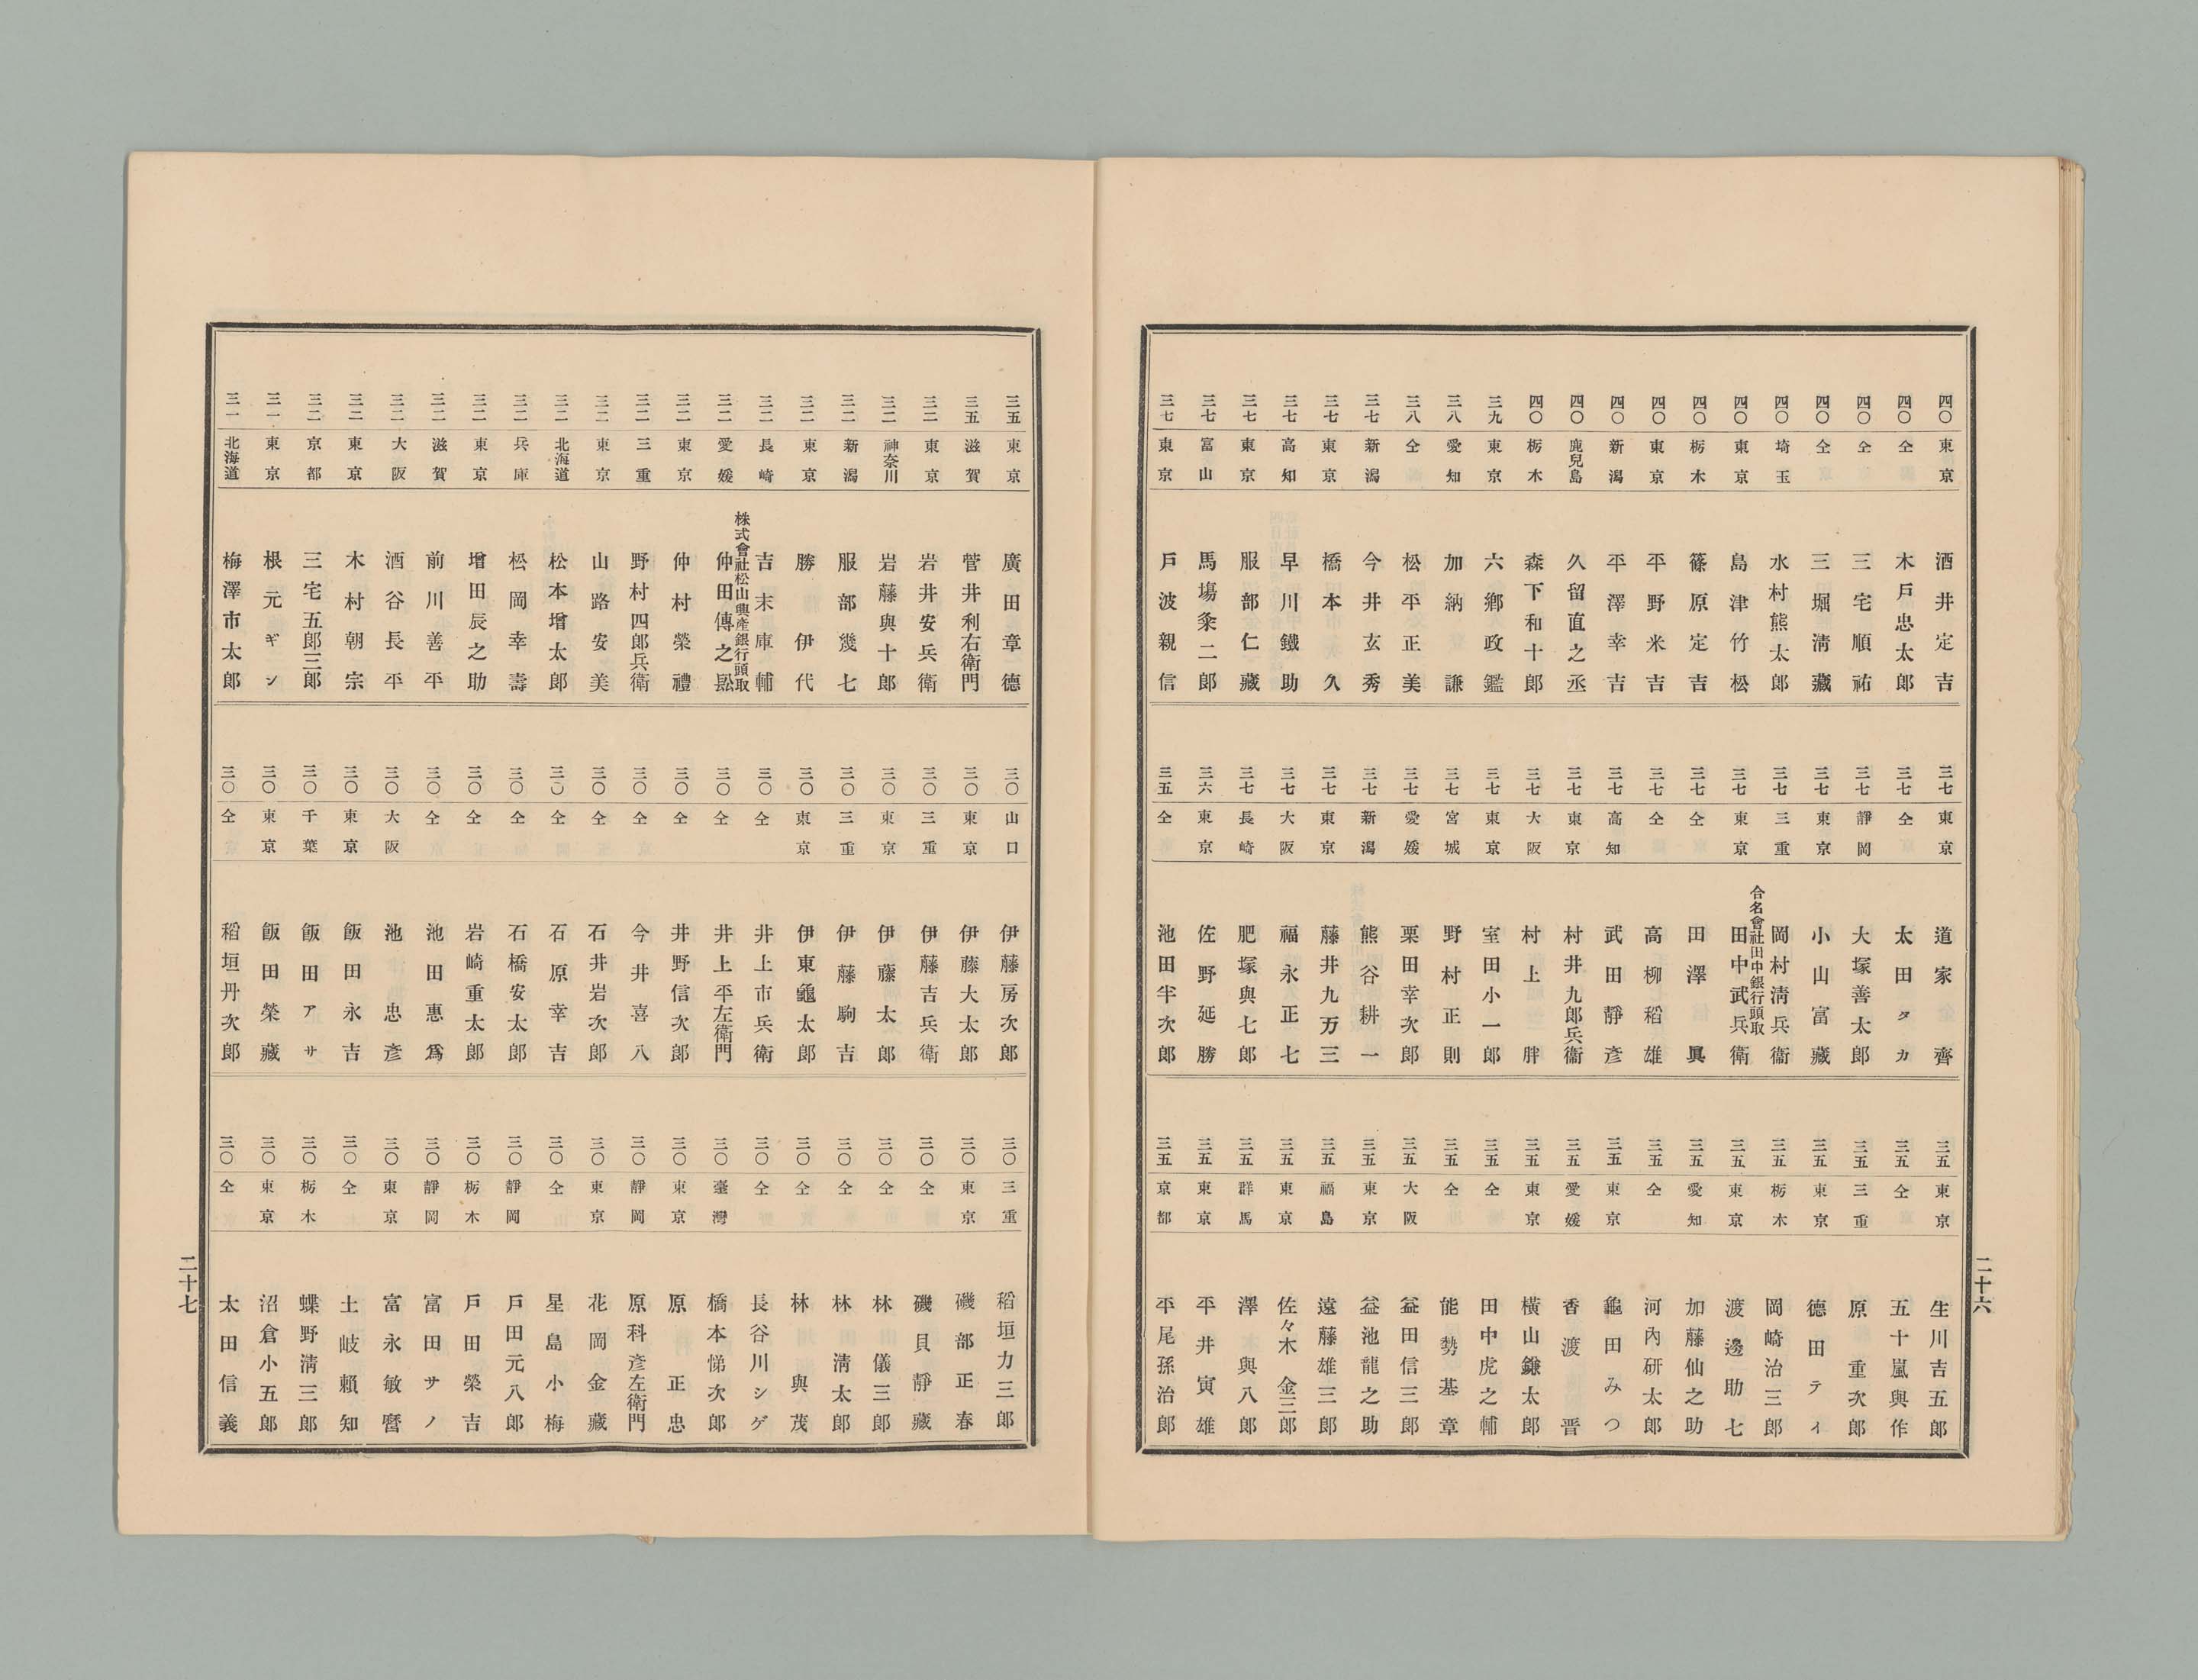 四〇 東京 酒井定吉
四〇 仝 木戸忠太郎
四〇 仝 三宅順祐
四〇 仝 三堀淸藏
四〇 埼玉 水村熊太郎
四〇 東京 島津竹松
四〇 栃木 篠原定吉
四〇 東京 平野米吉
四〇 新潟 平澤幸吉
四〇 鹿兒島 久留直之丞
四〇 栃木 森下和十郎
三九 東京 六鄕政鑑
三八 愛知 加納謙
三八 仝 松平正美
三七 新潟 今井玄秀
三七 東京 橋本久
三七 高知 早川鐵助
三七 東京 服部仁藏
三七 富山 馬塲粂二郎
三七 東京 戸波親信
三七 東京 道家齊
三七 仝 太田タカ
三七 靜岡 大塚善太郎
三七 東京 小山富藏
三七 三重 岡村淸兵衞
三七 東京 合名會社田中銀行頭取 田中武兵衞
三七 仝 田澤眞
三七 仝 高柳七稻雄
三七 高知 武田靜彥
三七 東京 村井九郎兵衞
三七 大阪 村上胖
三七 東京 室田小一郎
三七 宮城 野村正則
三七 愛媛 栗田幸次郎
三七 新潟 熊谷耕一
三七 東京 藤井九万三
三七 大阪 福永正七
三七 長崎 肥塚與七郎
三六 東京 佐野延勝
三五 仝 池田半次郎
三五 東京 生川吉五郎
三五 仝 五十嵐與作
三五 三重 原重次郎
三五 東京 德田テイ
三五 栃木 岡崎治三郎
三五 東京 渡邊助七
三五 愛知 加藤仙之助
三五 仝 河內研太郎
三五 東京 龜田みつ
三五 愛媛 香渡晋
三五 東京 橫山鎌太郎
三五 仝 田中虎之輔
三五 仝 能勢基章
三五 大阪 益田信三郎
三五 東京 益池龍之助
三五 福島 遠藤雄三郎
三五 東京 佐々木金三郎
三五 群馬 澤與八郎
三五 東京 平井寅雄
三五 京都 平尾孫治郎
二十六
三五 東京 廣田章德
三五 滋賀 菅井利右衞門
三二 東京 岩井安兵衞
三二 神奈川 岩藤與十郎
三二 新潟 服部幾七
三二 東京 勝伊代
三二 長崎 吉末庫輔
三二 愛媛 株式會社松山興產銀行頭取 仲田傳之
三二 東京 仲村榮禮
三二 三重 野村四郎兵衞
三二 東京 山路安美
三二 北海道 松本增太郎
三二 兵庫 松岡幸壽
三二 東京 增田辰之助
三二 滋賀 前川善平
三二 大阪 酒谷長平
三二 東京 木村朝宗
三二 京都 三宅五郎三郎
三一 東京 根元ギン
三一 北海道 梅澤市太郎
三〇 山口 伊藤房次郎
三〇 東京 伊藤大太郎
三〇 三重 伊藤吉兵衞
三〇 東京 伊藤太郎
三〇 三重 伊藤駒吉
三〇 東京 伊東龜太郎
三〇 仝 井上市兵衞
三〇 仝 井上平左衞門
三〇 仝 井野信次郎
三〇 仝 今井喜八
三〇 仝 石井岩次郎
三〇 仝 石原幸吉
三〇 仝 石橋安太郎
三〇 仝 岩崎重太郎
三〇 仝 池田惠爲
三〇 大阪 池忠彥
三〇 東京 飯田永吉
三〇 千葉 飯田アサ
三〇 東京 飯田榮藏
三〇 仝 稻垣丹次郎
三〇 三重 稻垣力三郎
三〇 東京 磯部正春
三〇 仝 磯貝靜藏
三〇 仝 林儀三郎
三〇 仝 林淸太郎
三〇 仝 林與茂
三〇 仝 長谷川シゲ
三〇 臺灣 橋本悌次郎
三〇 東京 原正忠
三〇 靜岡 原科彥左衞門
三〇 東京 花岡金藏
三〇 仝 星島小梅
三〇 靜岡 戸田元八郎
三〇 栃木 戸田榮吉
三〇 靜岡 富田サノ
三〇 東京 富永敏麿
三〇 仝 土岐賴知
三〇 栃木 蝶野淸三郎
三〇 東京 沼倉小五郎
三〇 仝 太田信義
二十七